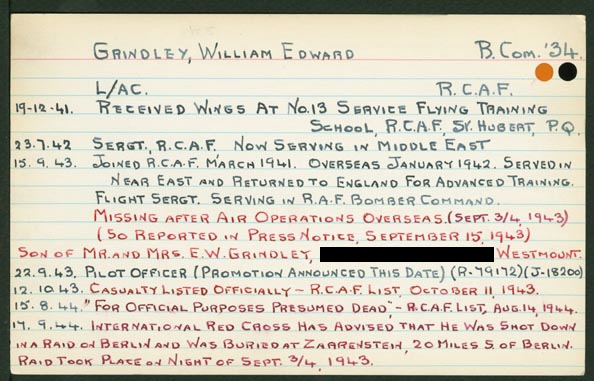 GRINDLEY, WILLIAM EDWARD B.COM.'34.
L/AC. R.C.A.F.
19-12-41. RECEIVED WINGS AT NO.13 SERVICE FLYING TRAINING
SCHOOL, R.C.A.F., ST. HUBERT, P.Q.
23.7.42 SERGT., R.C.A.F. NOW SERVING IN MIDDLE EAST
15.9.43. JOINED R.C.A.F. MARCH 1941. OVERSEAS JANUARY 1942. SERVED IN
NEAR EAST AND RETURNED TO ENGLAND FOR ADVANCED TRAINING.
FLIGHT SERGT. SERVING IN R.A.F. BOMBER COMMAND.
MISSING AFTER AIR OPERATIONS OVERSEAS. (SEPT. 3/4, 1943)
(SO REPORTED IN PRESS NOTICE, SEPTEMBER 15, 1943)
SON OF MR. AND MRS. E.W. GRINDLEY, WESTMOUNT.
22.9.43. PILOT OFFICER (PROMOTION ANNOUNCED THIS DATE) (R-79172) (J-18200)
12.10.43. CASUALTY LISTED OFFICIALLY - R.C.A.F. LIST, OCTOBER 11, 1943.
15.8.44. "FOR OFFICIAL PURPOSES PRESUMED DEAD", - R.C.A.F. LIST, AUG. 14, 1944.
17.9.44. INTERNATIONAL RED CROSS HAS ADVISED THAT HE WAS SHOT DOWN
IN A RAID ON BERLIN AND WAS BURIED AT ZARRENSTEIN, 20 MILES S. OF BERLIN.
RAID TOOK PLACE ON NIGHT OF SEPT. 3/4, 1943.